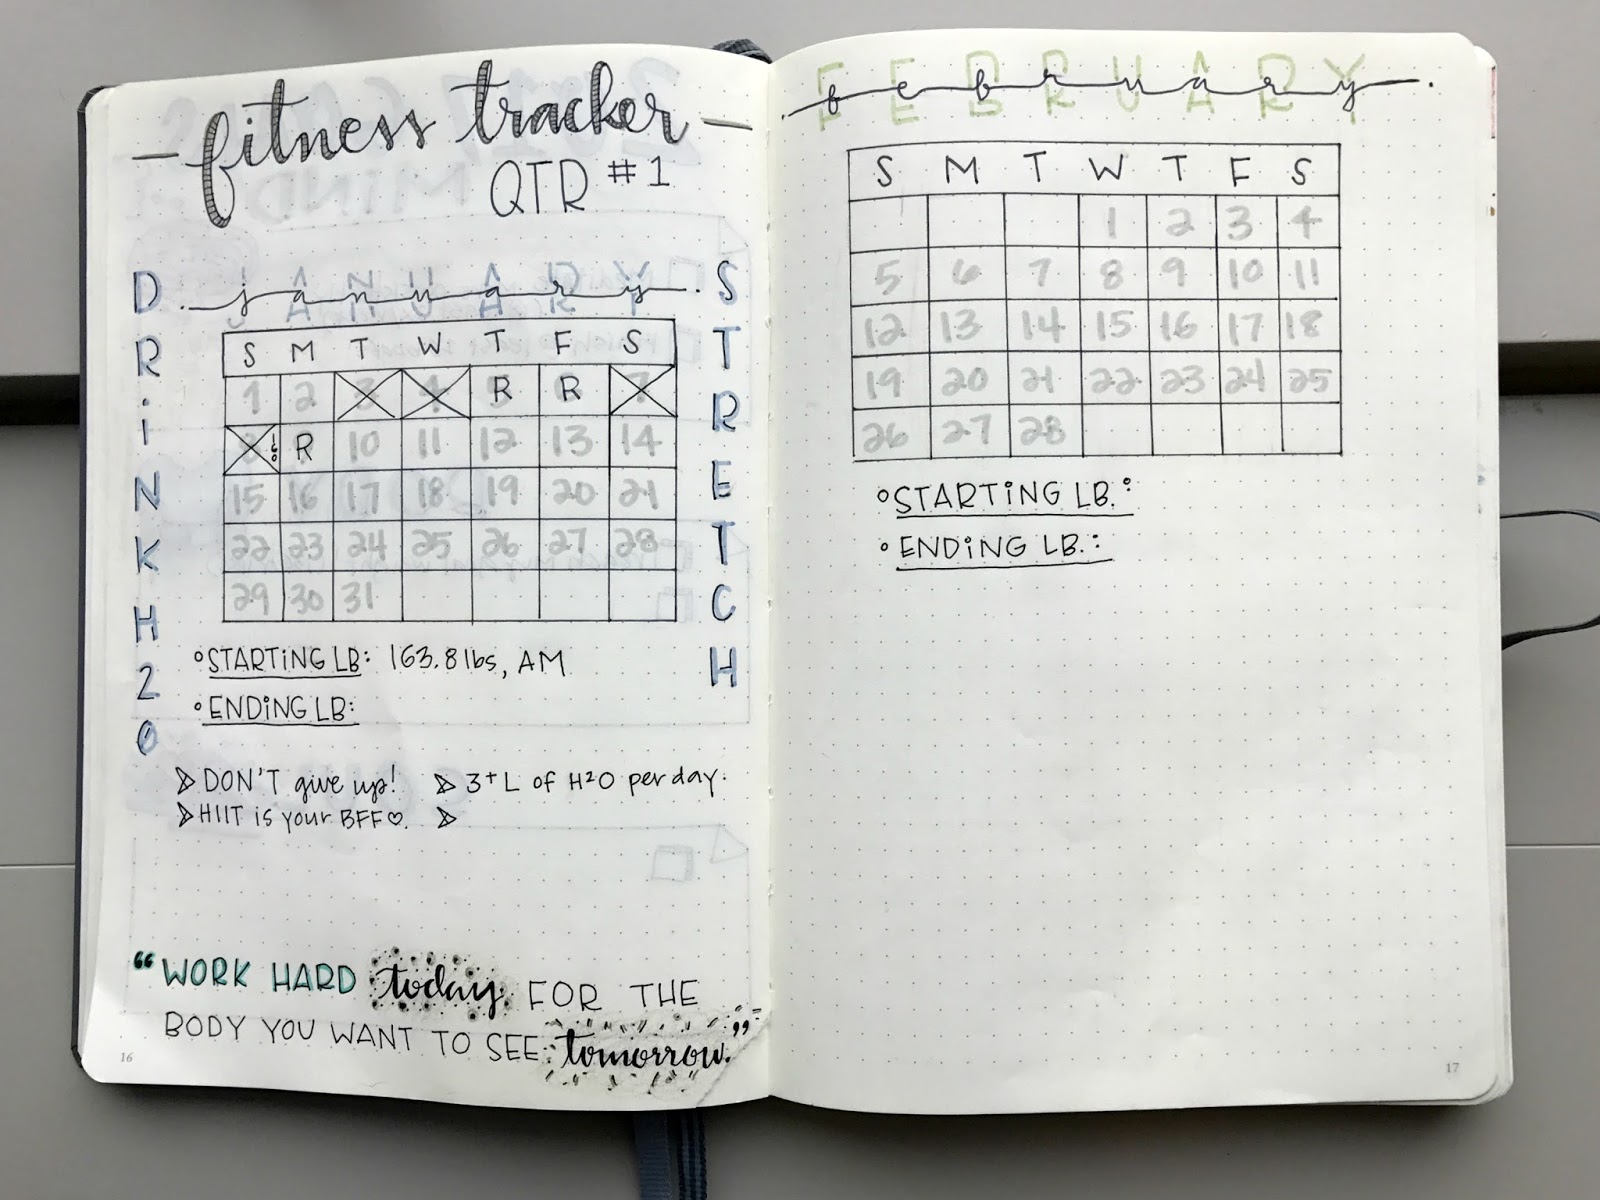 fitness tracker
QTR #1
january
DRiNK H20
STRETCH
S M T W T F S
1 2 3 4 5 R R 7
R 10 11 12 13 14
15 16 17 18 19 20 21
22 23 24 25 26 27 28
29 30 31
STARTiNG LB: 163.8 lbs, AM
ENDiNG LB:
DON'T give up! 3+ L of H2O per day.
HIIT is your BFF♡.
“WORK HARD today FOR THE
BODY YOU WANT TO SEE tomorrow.”
16
FEBRUARY
february
S M T W T F S
1 2 3 4
5 6 7 8 9 10 11
12 13 14 15 16 17 18
19 20 21 22 23 24 25
26 27 28
STARTiNG LB.:
ENDiNG LB.:
17